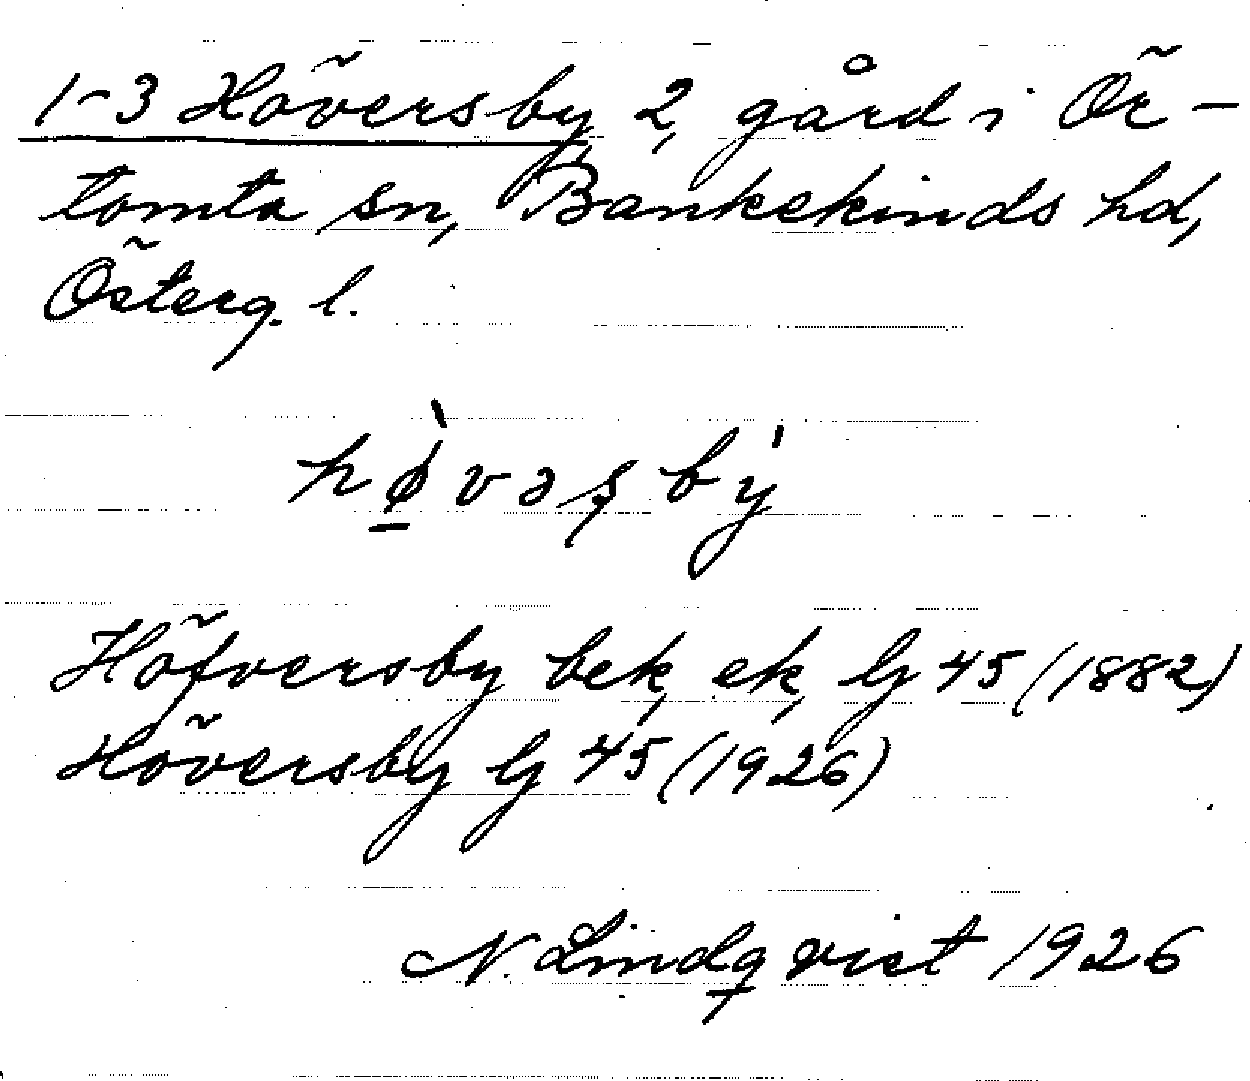 1-3 Höversby 2, gård i Ör-
tomta sn, Bankekinds hd,
Österg. l.
hø̀vəşbý
Höfversby bek, ek, lj 45 (1882)
Höversby lj 45 (1926)
N. Lindqvist 1926